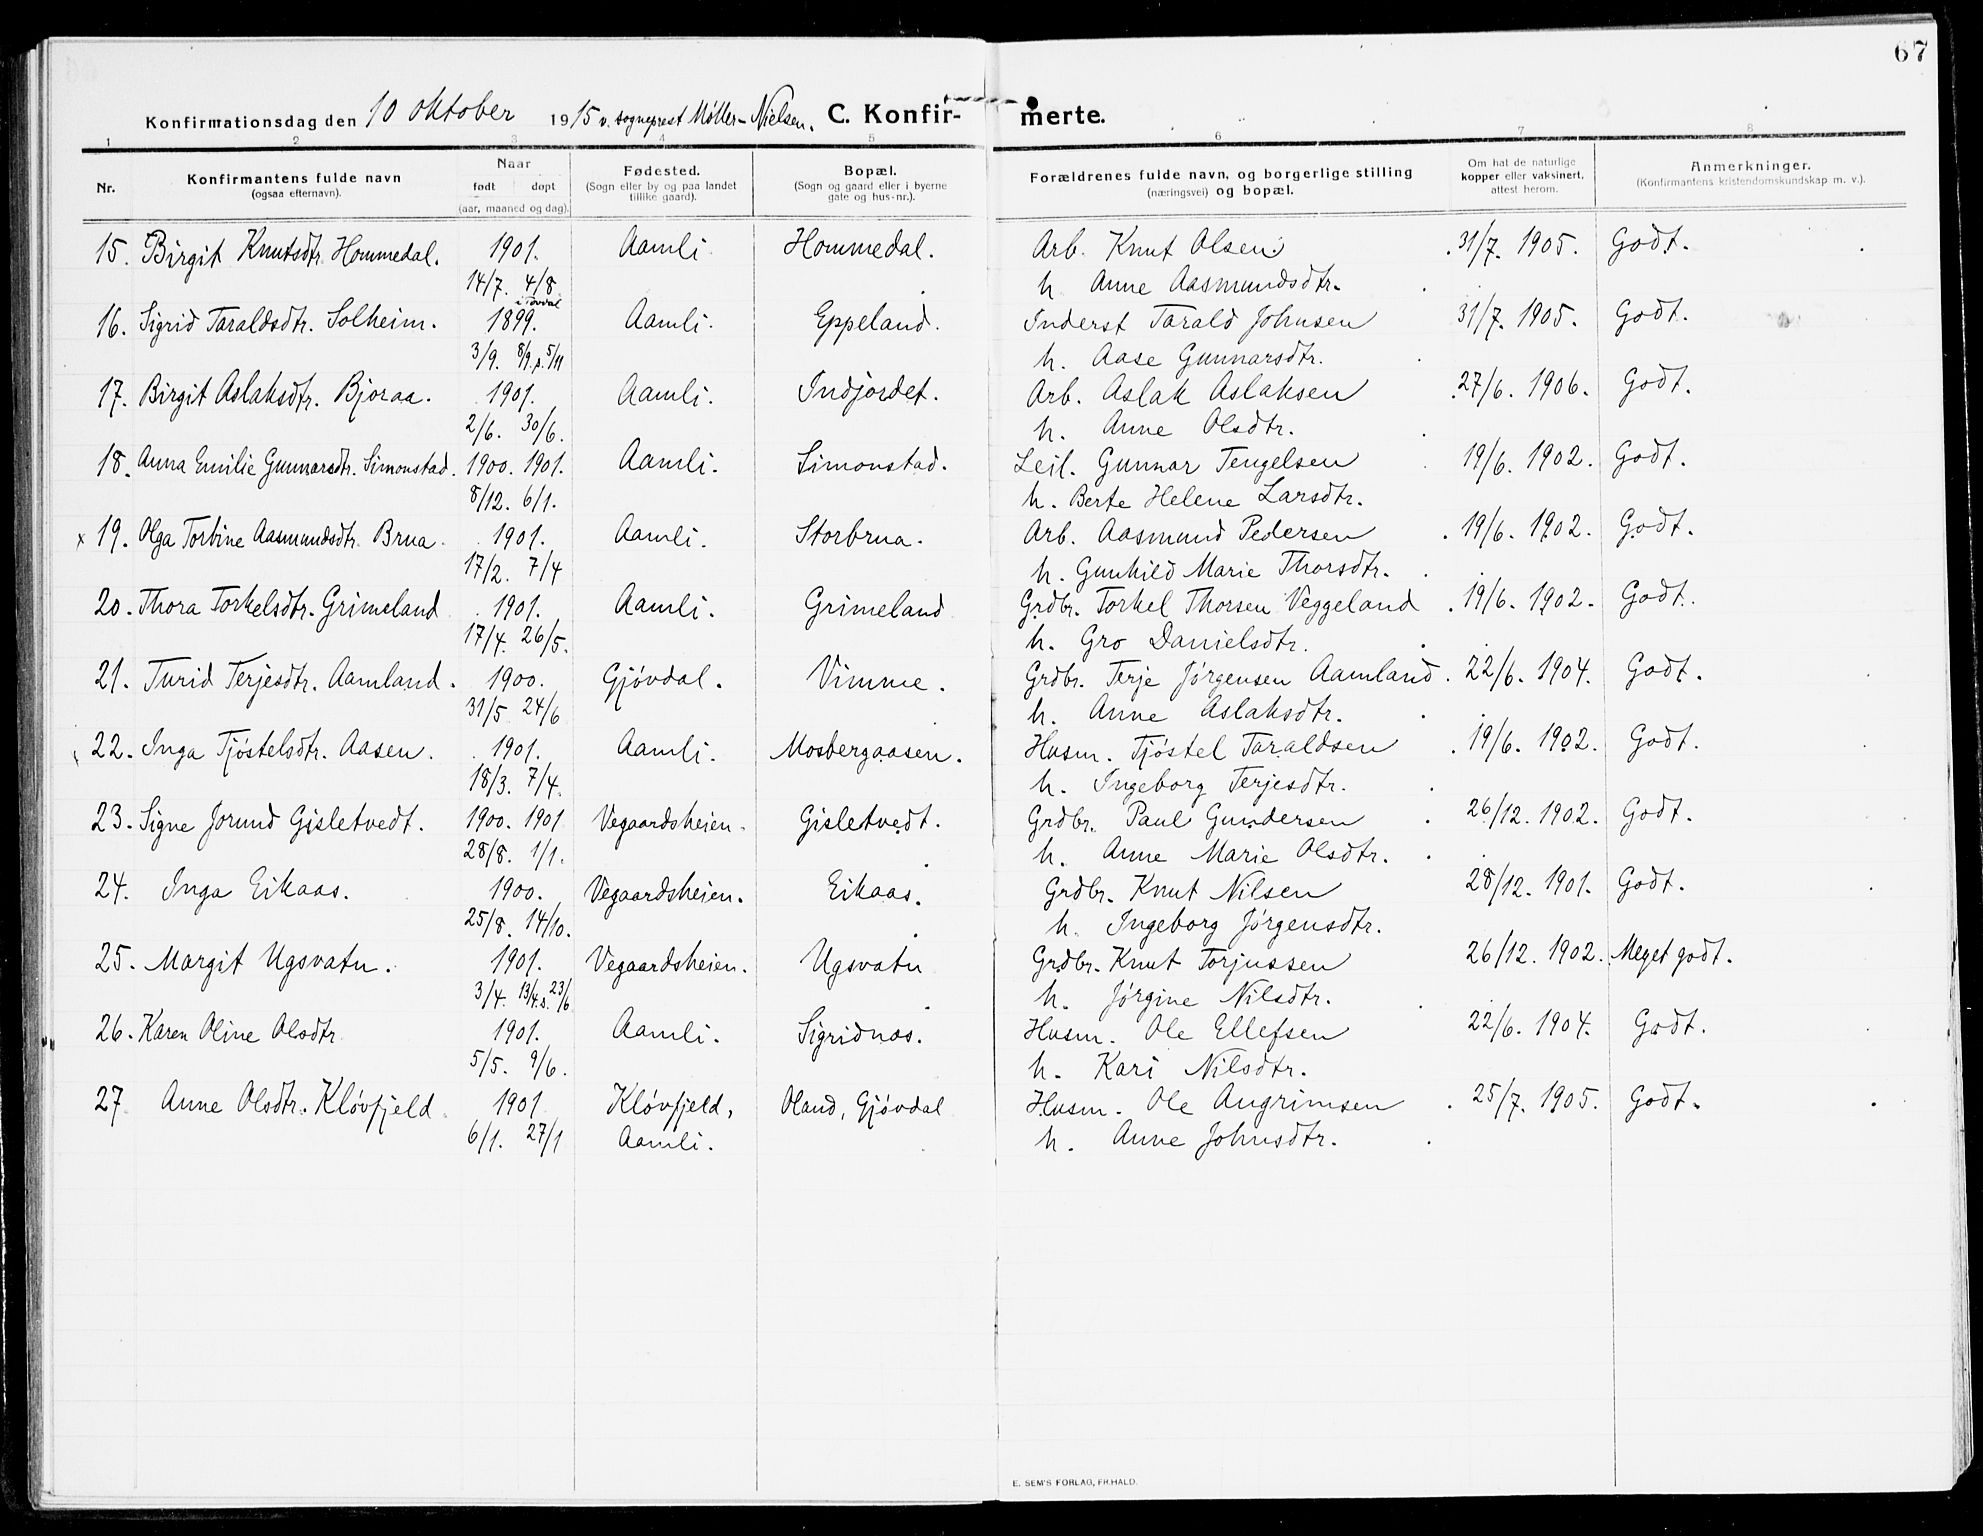 67
Konfirmationsdag den 10 oktober 1915 v. sogneprest Møller-Nielsen. C. Konfir- merte.
1 2 3 4 5 6 7 8
Nr. Konfirmantens fulde navn (ogsaa efternavn). Naar født døpt (aar, maaned og dag). Fødested. (Sogn eller by og paa landet tillike gaard). Bopæl. (Sogn og gaard eller i byerne gate og hus-nr.). Forældrenes fulde navn, og borgerlige stilling (næringsvei) og bopæl. Om hat de naturlige kopper eller vaksinert, attest herom. Anmerkninger. (Konfirmantens kristendomskundskap m. v.).
15. Birgit Knutsdtr. Hommedal. 1901. Aamli Hommedal. Arb. Knut Olsen 31/7. 1905. Godt.
14/7. 4/8 i Tovdal h. Anne Aasmundsdtr.
16. Sigrid Taraldsdtr. Solheim. 1899. Aamli. Eppeland. Inderst Tarald Johnsen 31/7. 1905. Godt.
3/9. 8/9 s. 5/11 h. Aase Gunnarsdtr.
17. Birgit Aslaksdtr. Bjoraa. 1901. Aamli. Indjordet. Arb. Aslak Aslaksen 27/6. 1906. Godt.
2/6. 30/6. h. Anne Olsdtr.
18. Anna Emilie Gunnarsdtr. Simonstad. 1900. 1901. Aamli. Simonstad. Leil. Gunnar Tengelsen 19/6. 1902. Godt.
8/12. 6/1. h. Berte Helene Larsdtr.
x 19. Olga Torbine Aasmundsdtr. Brua. 1901. Aamli. Storbrua. Arb. Aasmund Pedersen 19/6. 1902. Godt.
17/2. 7/4 h. Gunhild Marie Thorsdtr.
20. Thora Torkelsdtr. Grimeland 1901. Aamli. Grimeland Grdbr. Torkel Thorsen Veggeland 19/6. 1902. Godt.
17/4. 26/5. h. Gro Danielsdtr.
21. Turid Terjesdtr. Aamland. 1900. Gjøvdal. Vimme. Grdbr. Terje Jørgensen Aamland. 22/6. 1904. Godt.
31/5 24/6 h. Anne Aslaksdtr.
22. Inga Tjøstelsdtr. Aasen. 1901. Aamli. Mosbergaasen. Husm. Tjøstel Taraldsen 19/6. 1902. Godt.
18/3. 7/4. h. Ingeborg Terjesdtr.
23. Signe Jorund Gisletvedt. 1900. 1901 Vegaardsheien. Gisletvedt. Grdbr. Paul Gundersen 26/12. 1902. Godt.
28/8. 1/1. h. Anne Marie Olsdtr.
24. Inga Eikaas. 1900. Vegaardsheien. Eikaas. Grdbr. Knut Nilsen 28/12. 1901. Godt.
25/8. 14/10. h. Ingeborg Jørgensdtr.
25. Margit Ugsvatn. 1901. Vegaardsheien. Ugsvatn Grdbr. Knut Torjussen 26/12. 1902. Meget godt.
3/4. 13/4 s. 23/6 h. Jørgine Nilsdtr.
26. Karen Oline Olsdtr. 1901. Aamli. Sigridnes. Husm. Ole Ellefsen 22/6. 1904. Godt.
5/5. 9/6. h. Kari Nilsdtr.
27 Anne Olsdtr. Kløvfjeld. 1901 Kløvfjeld, Oland, Gjøvdal Husm. Ole Angrimsen 25/7. 1905. Godt.
6/1. 27/1 Aamli. h. Anne Johnsdtr.
E. SEM'S FORLAG, FR.HALD.